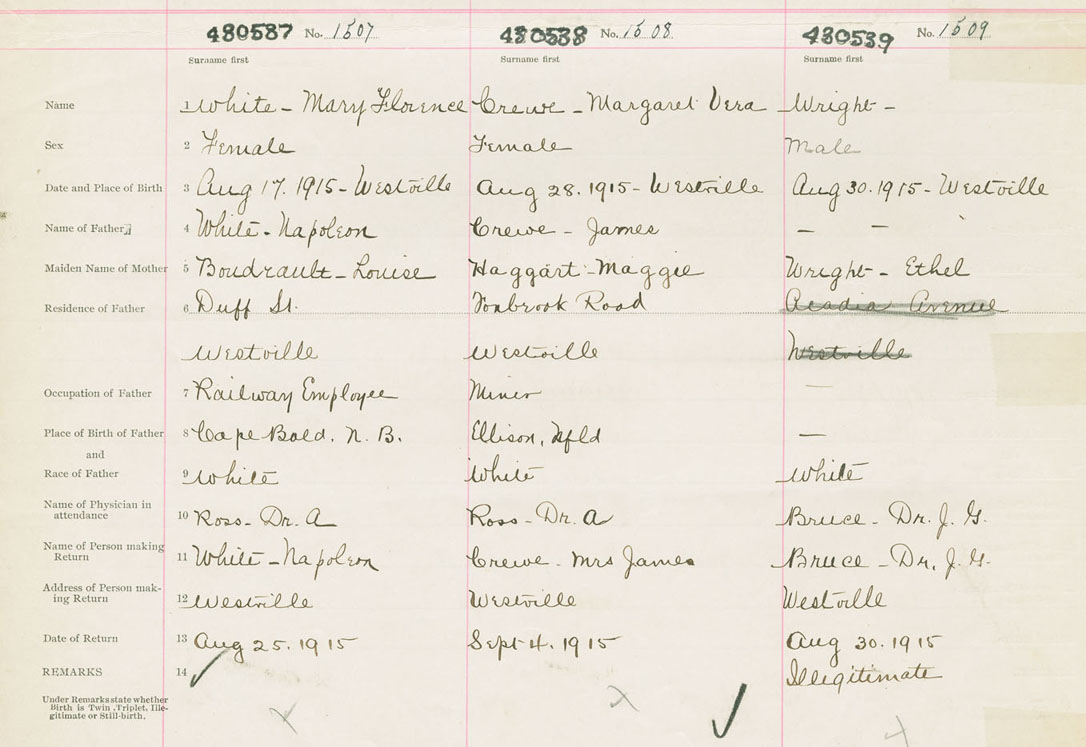 480587 No. 1507 480538 No. 1508 480539 No. 1509
Surname first Surname first Surname first
Name 1 White - Mary Florence Crewe - Margaret Vera Wright -
Sex 2 Female Female Male
Date and Place of Birth 3 Aug 17. 1915 - Westville Aug 28. 1915 - Westville Aug 30. 1915 - Westville
Name of Father 4 White - Napoleon Crewe - James — — -
Maiden Name of Mother 5 Boudrault - Louise Haggart - Maggie Wright - Ethel
Residence of Father 6 Duff St. Foxbrook Road Acadia Avenue
Westville Westville Westville
Occupation of Father 7 Railway Employee Miner —
Place of Birth of Father 8 Cape Bald. N. B. Ellison, Nfld —
and
Race of Father 9 White White White
Name of Physician in
attendance 10 Ross - Dr. A Ross - Dr. A Bruce - Dr. J. G.
Name of Person making
Return 11 White - Napoleon Crewe - Mrs James Bruce - Dr. J. G.
Address of Person mak-
ing Return 12 Westville Westville Westville
Date of Return 13 Aug 25. 1915 Sept 4. 1915 Aug 30. 1915
REMARKS 14 Illegitimate
Under Remarks state whether
Birth is Twin, Triplet, Ille-
gitimate or Still-birth.